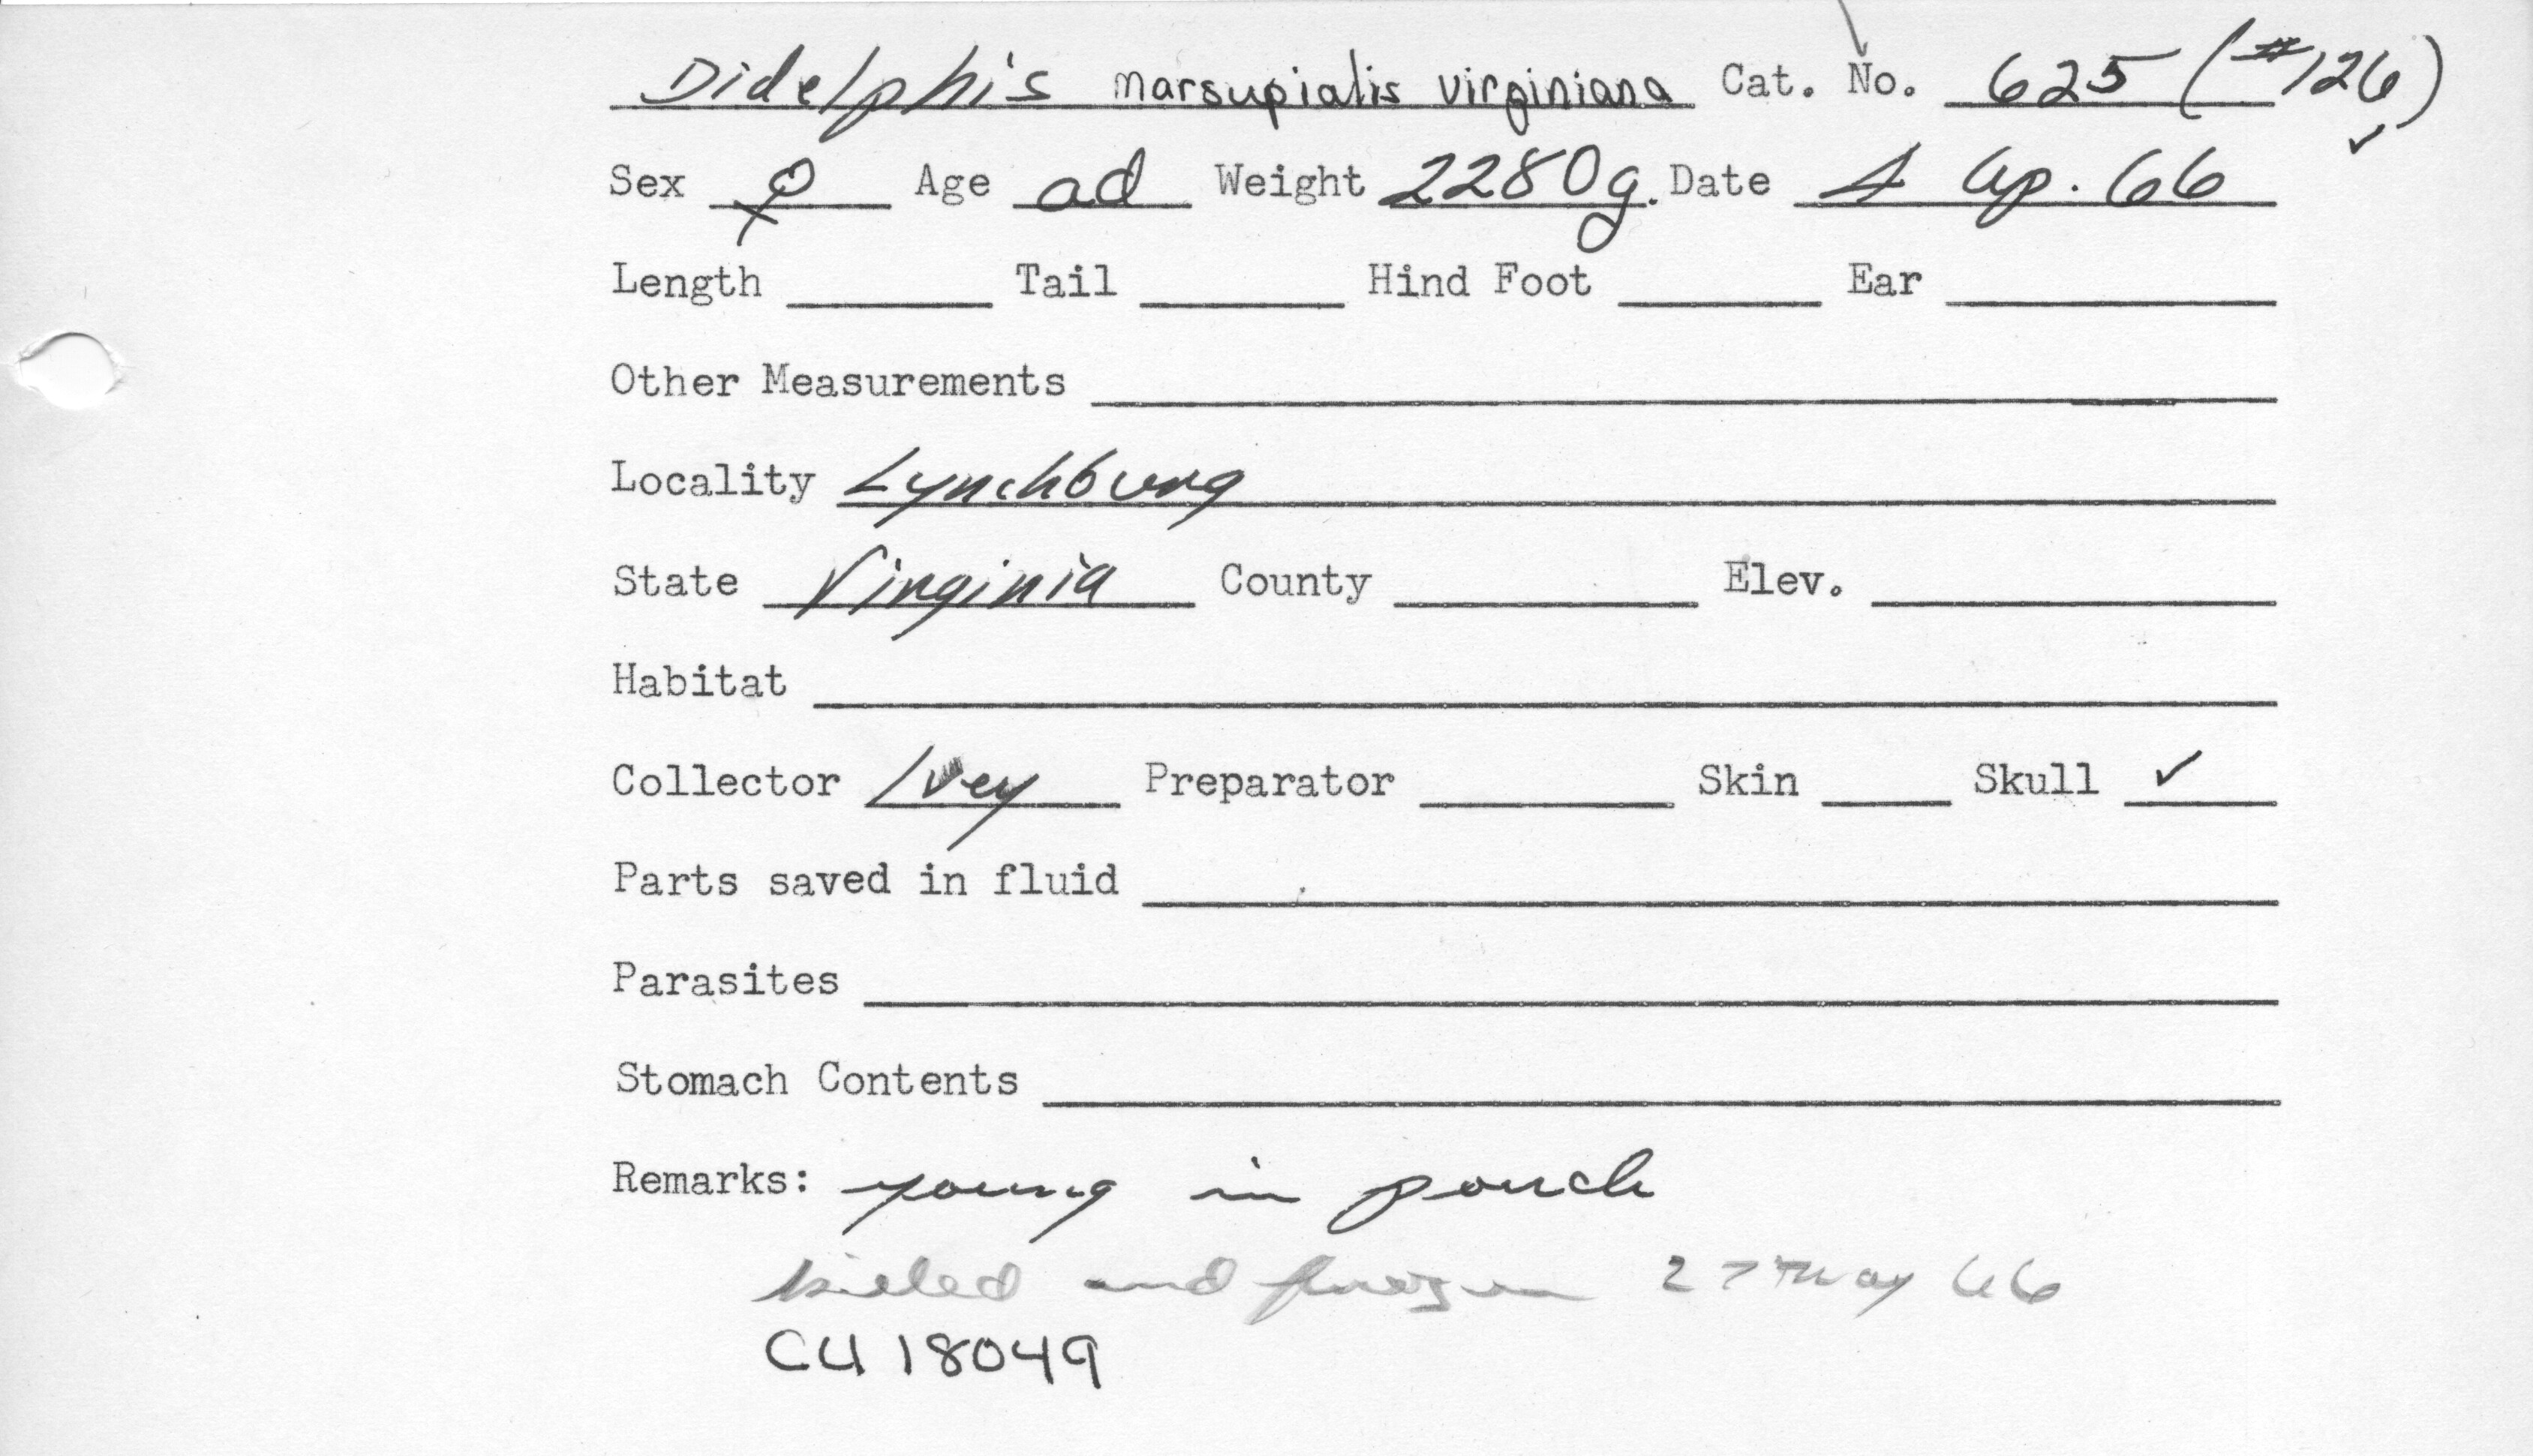 Didelphis marsupialis virginiana Cat. No. 625 (#126)
Sex ♀ Age ad Weight 2280g. Date 4 Ap. 66 ✓
Length Tail Hind Foot Ear
Other Measurements
Locality Lynchburg
State Virginia County Elev.
Habitat
Collector Ivey Preparator Skin Skull ✓
Parts saved in fluid
Parasites
Stomach Contents
Remarks: young in pouch
killed and frozen 27 May 66
CU 18049